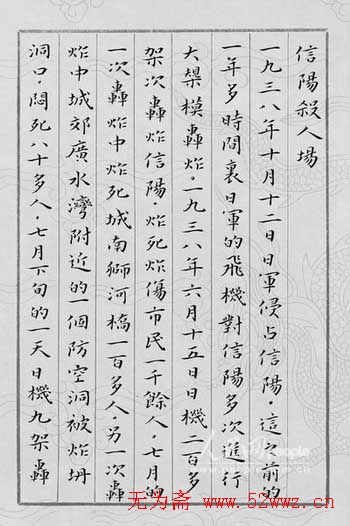 信陽殺人場
一九三八年十月十二日日軍侵占信陽．這之前的
一年多時間裏日軍的飛機對信陽多次進行
大槼模轟炸．一九三八年六月十五日日機二百多
架次轟炸信陽炸死炸傷市民一千餘人．七月的
一次轟炸中炸死城南獅河橋一百多人．另一次轟
炸中城郊廣水灣附近的一個防空洞被炸坍
洞口．悶死八十多人．七月下旬的一天日機九架轟
无为斋 - www.52wwz.cn